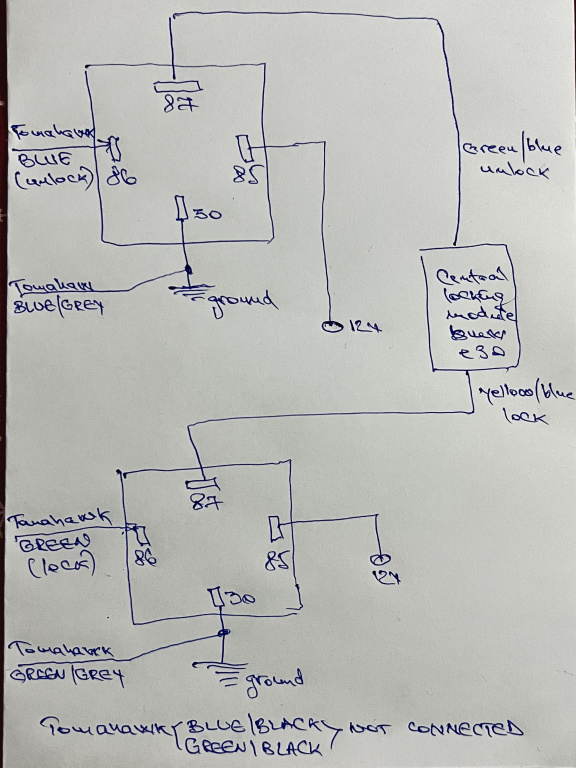 87
Tomahawk
BLUE
(unlock)
86
85
30
Tomahawk
BLUE/GREY
ground
12V
Green/blue
unlock
Central
locking
module
e30
Yellow/blue
lock
87
Tomahawk
GREEN
(lock)
86
85
30
12V
Tomahawk
GREEN/GREY
ground
Tomahawk BLUE/BLACK NOT CONNECTED
GREEN/BLACK